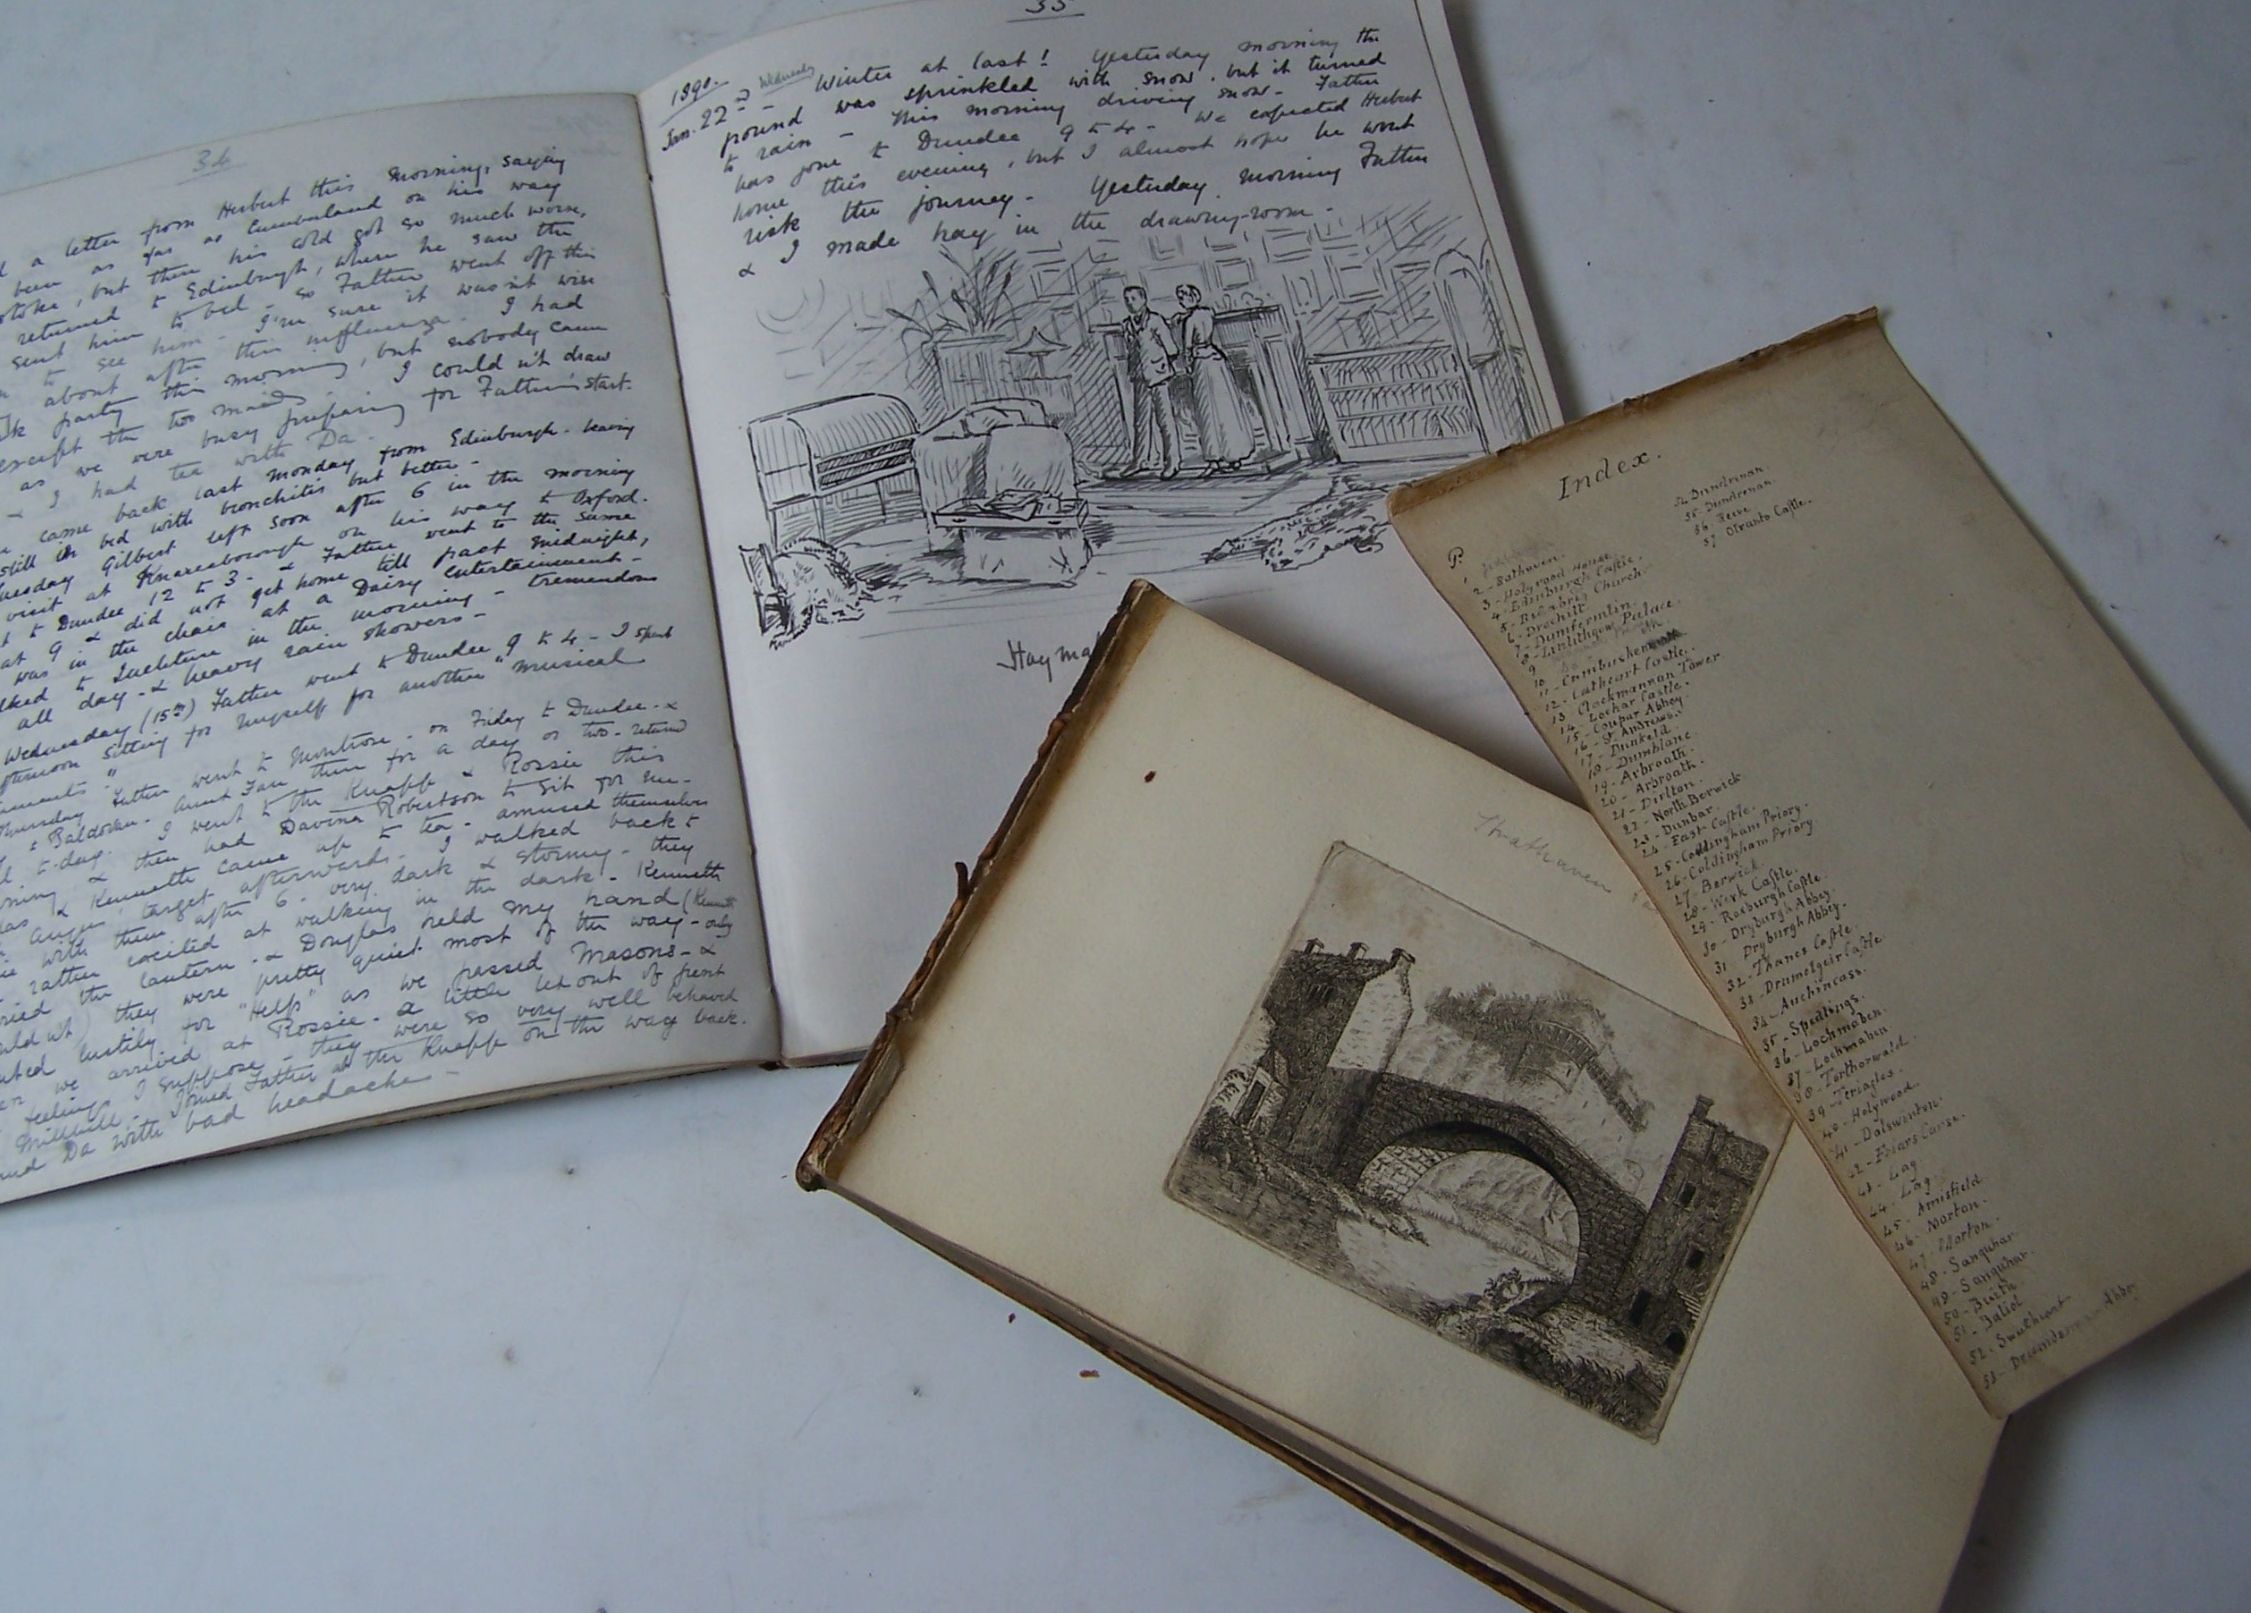 34
a letter from Herbert this morning, saying
been as far as Cumberland on his way
stoke, but there his cold got so much worse,
returned to Edinburgh, where he saw the
sent him to bed - so Father went off this
to see him - I'm sure it wasn't wise
about after this influenza. I had
party this morning, but nobody came
except the two maids. I couldn't draw
as we were busy preparing for Father's start.
& I had tea with Da.
came back last Monday from Edinburgh - leaving
still in bed with bronchitis but better -
Tuesday Gilbert left soon after 6 in the morning
visit at Knaresborough on his way to Oxford.
to Dundee 12 to 3 - & Father went to the same
at 9 & did not get home till past midnight,
was in the chair at a Daisy Entertainment -
walked to Inchture in the morning - tremendous
all day - & heavy rain showers -
Wednesday (15th) Father went to Dundee 9 to 4 - I spent
afternoon sitting for myself for another "musical
Thursday Father went to Montrose - on Friday to Dundee - &
& Baldovan - Aunt Fan there for a day or two - returned
to-day. I went to the Knapp & Rossie this
morning & then had Davina Robertson to sit for me -
& Kenneth came up to tea - amused themselves
target afterwards - I walked back to
with them after 6 - very dark & stormy - they
rather excited at walking in the dark - Kenneth
carried the lantern. & Douglas held my hand (Kenneth
wouldn't) they were pretty quiet most of the way - only
shouted lustily for "Help" as we passed Masons - &
we arrived at Rossie - a little let out of pent
feelings I suppose - they were so very well behaved
Millhill. Joined Father at the Knapp on the way back.
Da with bad headache -
35
1890.
Jan. 22nd Wednesday - Winter at last! Yesterday morning the
ground was sprinkled with snow, but it turned
to rain - This morning driving snow - Father
has gone to Dundee 9 to 4 - We expected Herbert
home this evening, but I almost hope he wont
risk the journey - Yesterday morning Father
& I made hay in the drawing-room -
Hayma
Strathaven
Index.
P.
2 - Bothaven.
3 - Holyrood House
4 - Edinburgh Castle.
5 - Church.
6 - Drochill
7 - Dumfermlin.
8 - Linlithgow Palace.
9
10
11 -
12 - Cathcart Castle.
13 - Clackmannan Tower
14 - Lochar Castle.
15 - Coupar Abbey
16 - St Andrews.
17 - Dunkeld.
18 - Dumblane.
19 - Arbroath.
20 - Arbroath.
21 - Dirlton.
22 - North Berwick
23 - Dunbar.
24 - East Castle.
25 - Coldingham Priory.
26 - Coldingham Priory.
27 - Berwick.
28 - Werk Castle.
29 - Roxburgh Castle.
30 - Dryburgh Abbey.
31 Dryburgh Abbey.
32 - Thanes Castle.
33 - Castle.
34 - Auchincass.
35 - Spedlings.
36 - Lochmaben.
37 - Lochmaben
38 - Torthorwald.
39 - Teriagles.
40 - Holywood.
41 - Dalswinton.
42 - Friars Carse.
43 - Lag
44 - Lag
45 - Amisfield
46 - Morton.
47 - Morton.
48 - Sanquhar
49 - Sanquhar.
50 -
51 - Baliol
52 -
53 - Abbey
54 Dundrenan
55 - Dundrenan.
56 -
57 Otranto Castle.